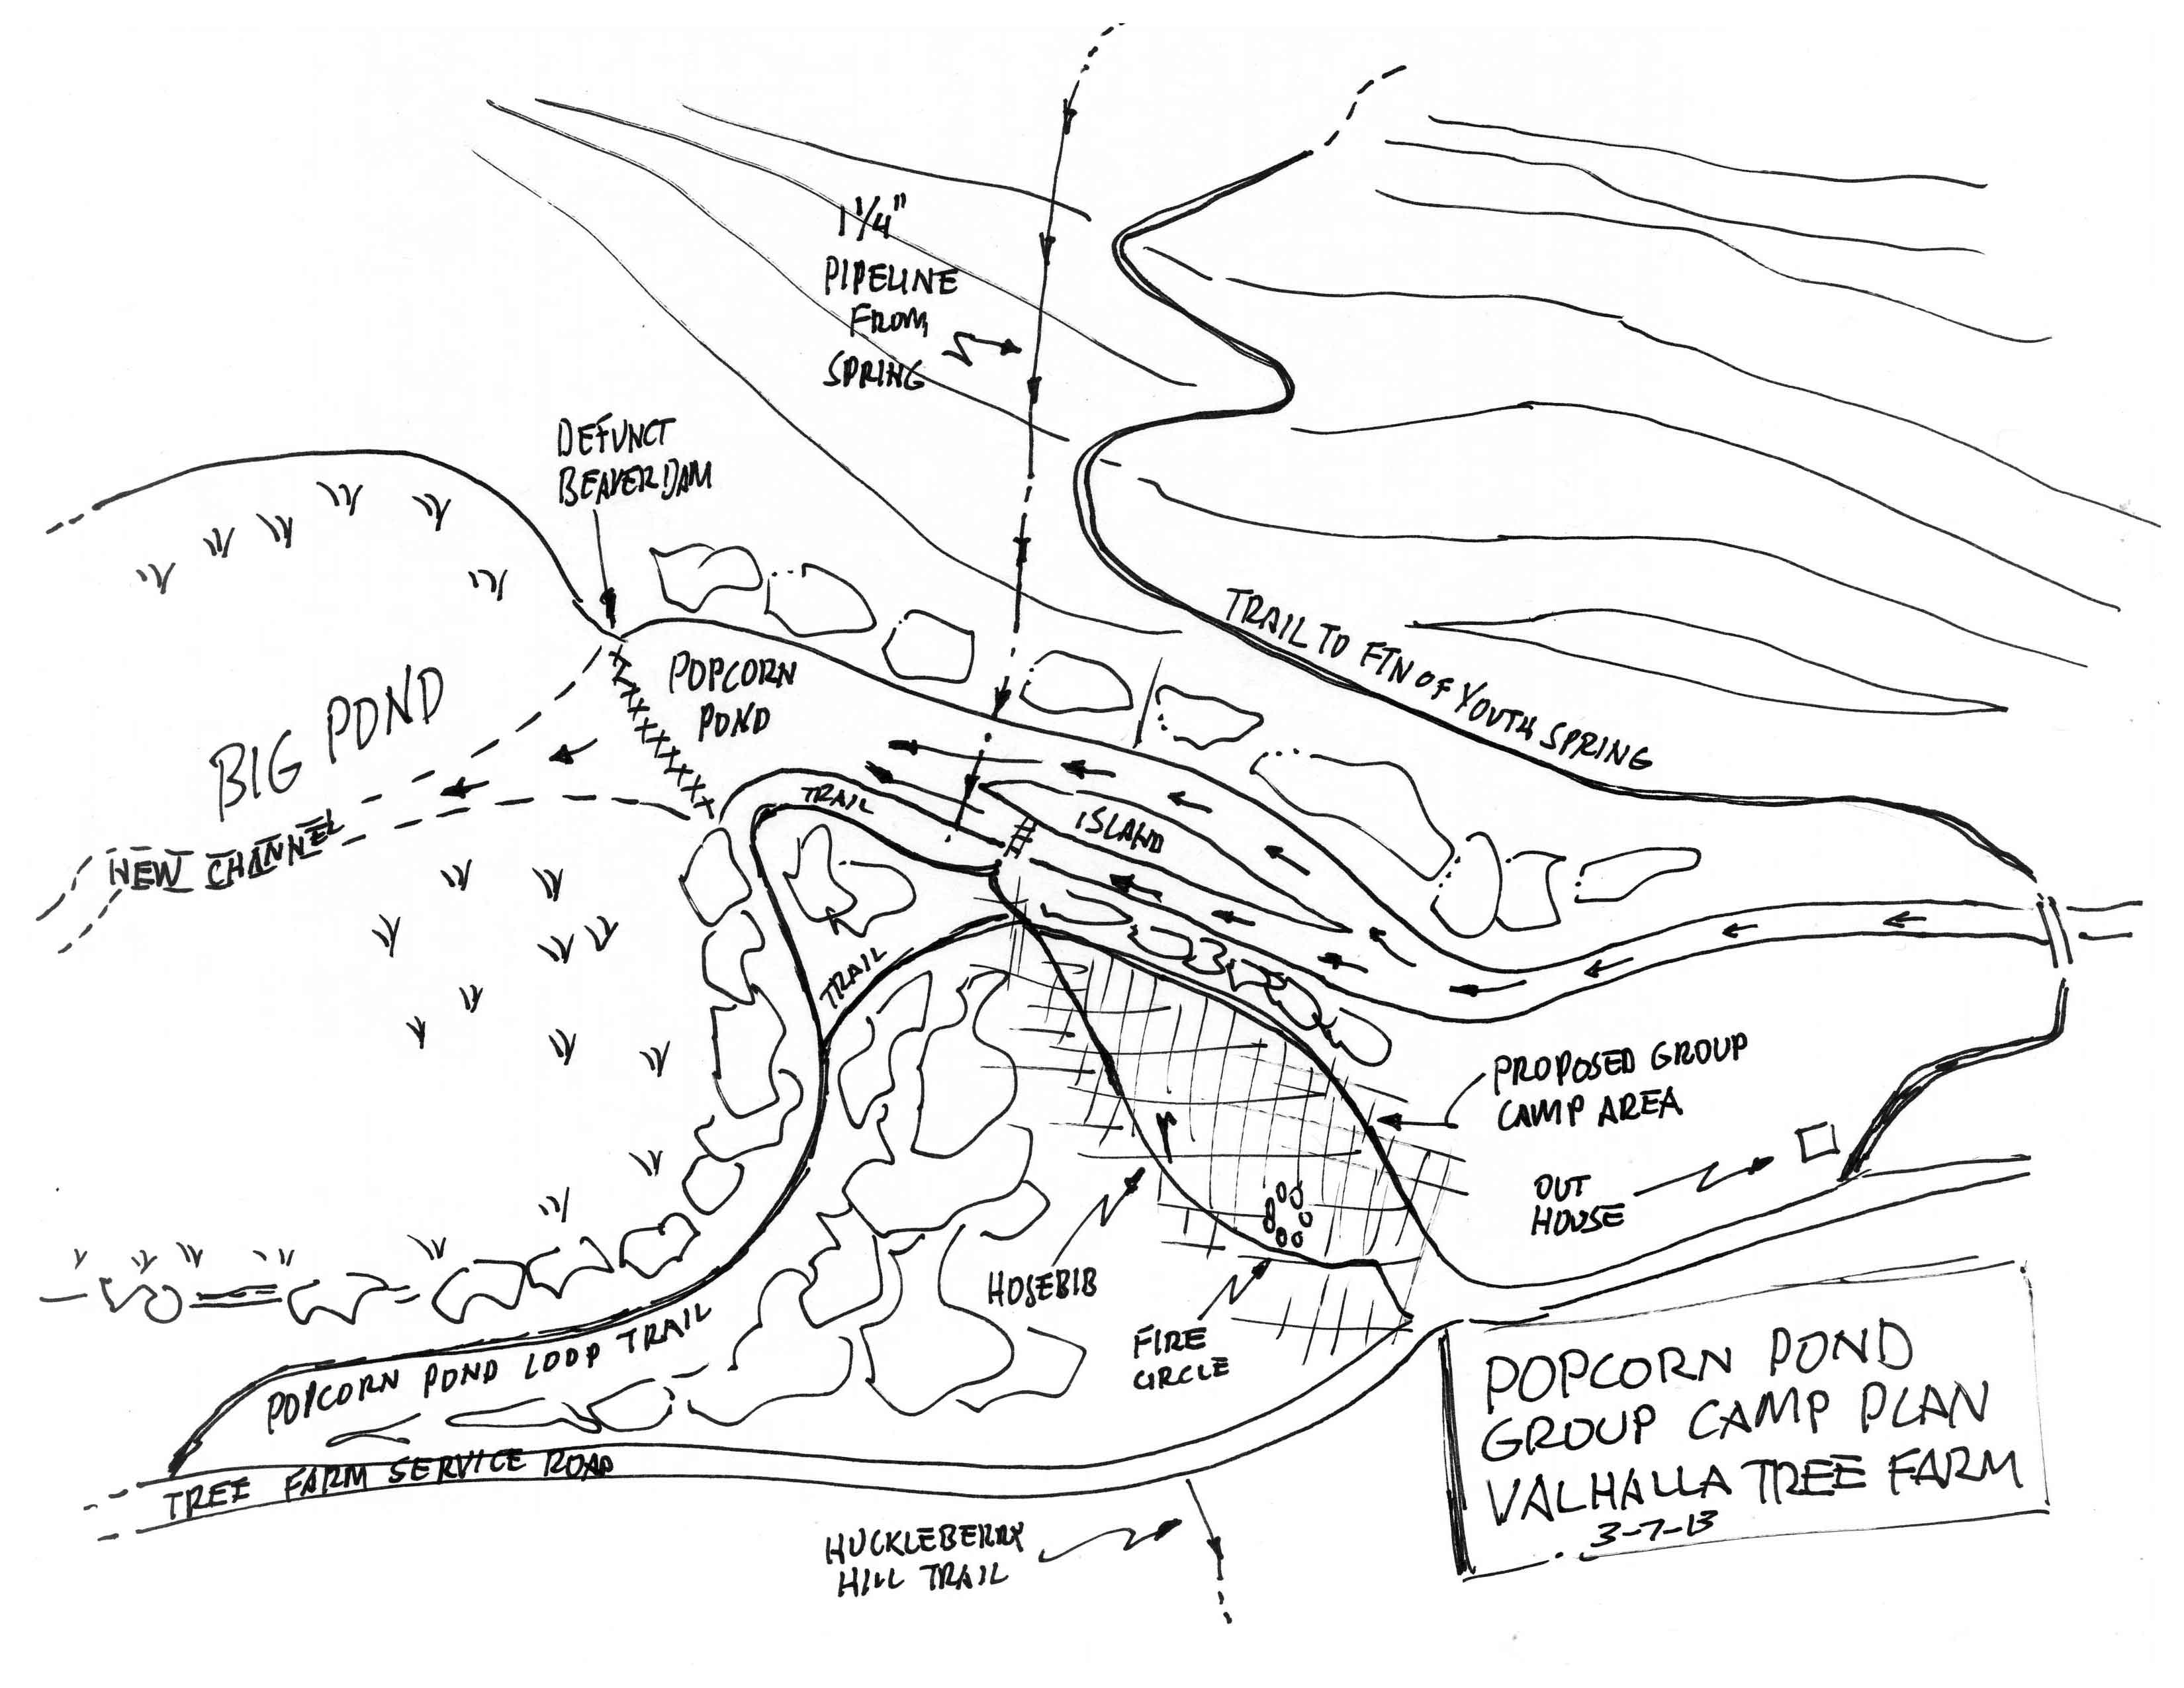 1¼"
PIPELINE
FROM
SPRING
DEFUNCT
BEAVER DAM
TRAIL TO FTN OF YOUTH SPRING
POPCORN
POND
BIG POND
NEW CHANNEL
TRAIL
ISLAND
TRAIL
PROPOSED GROUP
CAMP AREA
OUT
HOUSE
HOSEBIB
FIRE
CIRCLE
POPCORN POND LOOP TRAIL
TREE FARM SERVICE ROAD
HUCKLEBERRY
HILL TRAIL
POPCORN POND
GROUP CAMP PLAN
VALHALLA TREE FARM
3-7-13